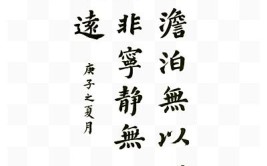 澹泊無以
非寧静無
遠
庚子之夏月